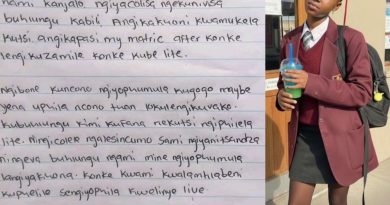 nami. Kanjalo, ngiyacolisa ngekunivisa
buhungu kabil, Angikakuoni kwamukela
kutsi. angikapasi my matric after konke
lengikuzamile konke kube lite.
Ngibone kuncono ngiyophumula kugogo maybe
yena uphila ncono tuon lokulengikuvako.
kubuhlungu kimi kufana nekutsi ngiphilela
lite. Ningicolele ngalesincumo sami ngiyanitsandza
ningeva buhungu ngami mine ngiyophumula
langiyakhona. Konke kwami kwalamhlabeni
kuphelile sengiyophila kwelinye live